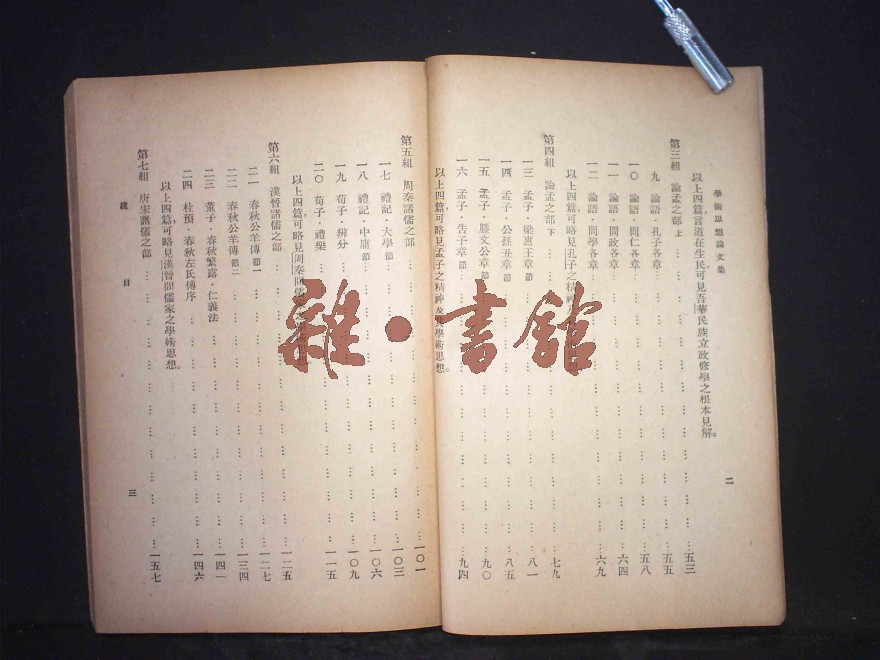 學術思想論文集
以上四篇，言道在生民，可見吾華民族立政修學之根本見解。
第三組　論孟之部 上 … 五三
九　論語·孔子各章 … 五五
一〇　論語·問仁各章 … 五八
一一　論語·問政各章 … 六四
一二　論語·問學各章 … 六九
以上四篇，可略見孔子之精神
第四組　論孟之部 下 … 七九
一三　孟子·梁惠王章 節 … 八一
一四　孟子·公孫丑章 節 … 八五
一五　孟子·滕文公章 節 … 九〇
一六　孟子·告子章 節 … 九四
以上四篇，可略見孟子之精神及其學術思想。
二
第五組　周秦諸儒之部 … 一〇一
一七　禮記·大學 節 … 一〇三
一八　禮記·中庸 節 … 一〇六
一九　荀子·辨分 … 一〇九
二〇　荀子·禮樂 … 一一五
以上四篇，可略見周秦間儒
第六組　漢晉諸儒之部 … 一二五
二一　春秋公羊傳 節一 … 一二七
二二　春秋公羊傳 節二 … 一三四
二三　董子·春秋繁露·仁義法 … 一四一
二四　杜預·春秋左氏傳序 … 一四六
以上四篇，可略見漢晉間儒家之學術思想。
第七組　唐宋諸儒之部 … 一五七
總目
三
雜·書館